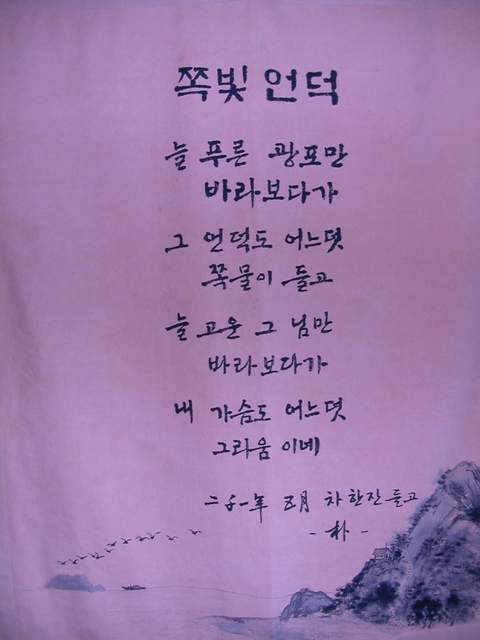 쪽빛 언덕
늘 푸른 광포만
바라보다가
그 언덕도 어느덧
쪽물이 들고
늘 고운 그 님만
바라보다가
내 가슴도 어느덧
그라움이네
年 五月 차 한잔 들고
-朴-